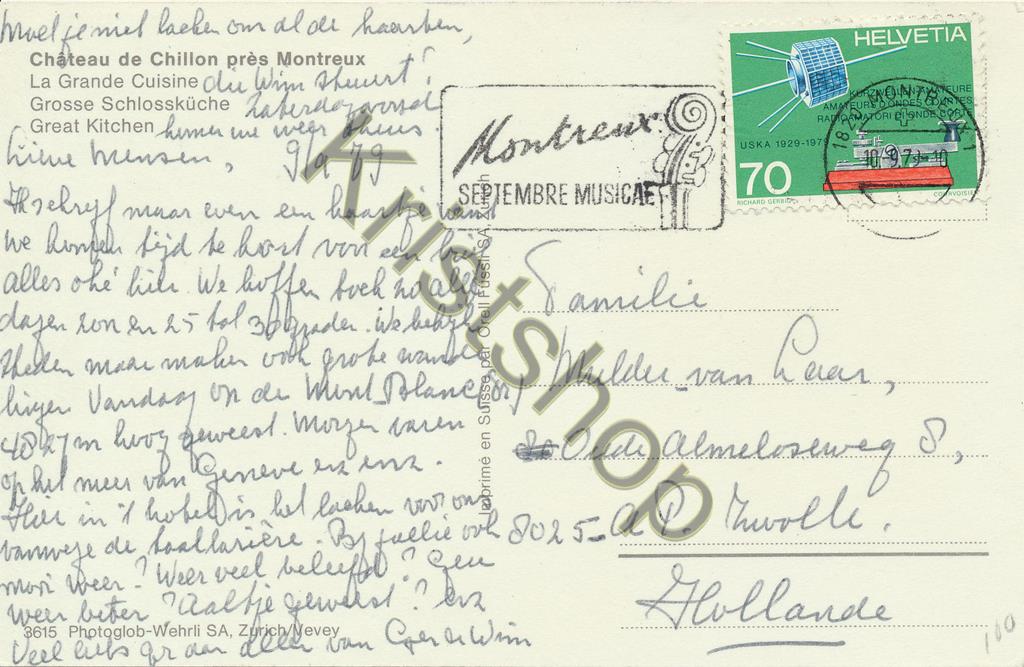 Moet je niet lachen om al de kaarten,
die Wim stuurt!
Zaterdagavond
komen we weer thuis.
Château de Chillon près Montreux
La Grande Cuisine
Grosse Schlossküche
Great Kitchen
Lieve mensen, 9/9 79
Ik schrijf maar even een kaartje want
we komen tijd te kort voor een brief
alles oké hier. We boffen toch zo alle
dagen zon en 25 tot 30 graden. We bekijken
steden maar maken ook grote wande
lingen. Vandaag op de Mont-Blanc
4827 m hoog geweest. Morgen varen
op het meer van Geneve enz enz.
Hier in 't hotel is het lachen voor ons
vanwege de taalbarière. Bij jullie ook
mooi weer? Weer veel beleefd?
weer beter? Aaltje geweest? enz
Veel liefs van allen van en Wim
3615 Photoglob-Wehrli SA, Zurich/Vevey
Imprimé en Suisse par Orell Füssli SA, Zürich
Montreux
SEPTEMBRE MUSICAL
HELVETIA
KURZWELLEN-AMATEURE
AMATEURS D'ONDES COURTES
RADIOAMATORI DI ONDE CORTE
USKA 1929-1979
70
RICHARD GERBIG
COURVOISIER
1820 MONTREUX 1
10.9.79-10
Familie
Mulder-van Laar,
Oude Almeloseweg 8,
8025-AP. Zwolle.
Hollande
100
Kristshop